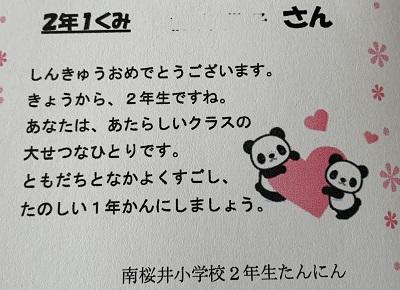 2年1くみ さん
しんきゅうおめでとうございます。
きょうから、2年生ですね。
あなたは、あたらしいクラスの
大せつなひとりです。
ともだちとなかよくすごし、
たのしい1年かんにしましょう。
南桜井小学校2年生たんにん